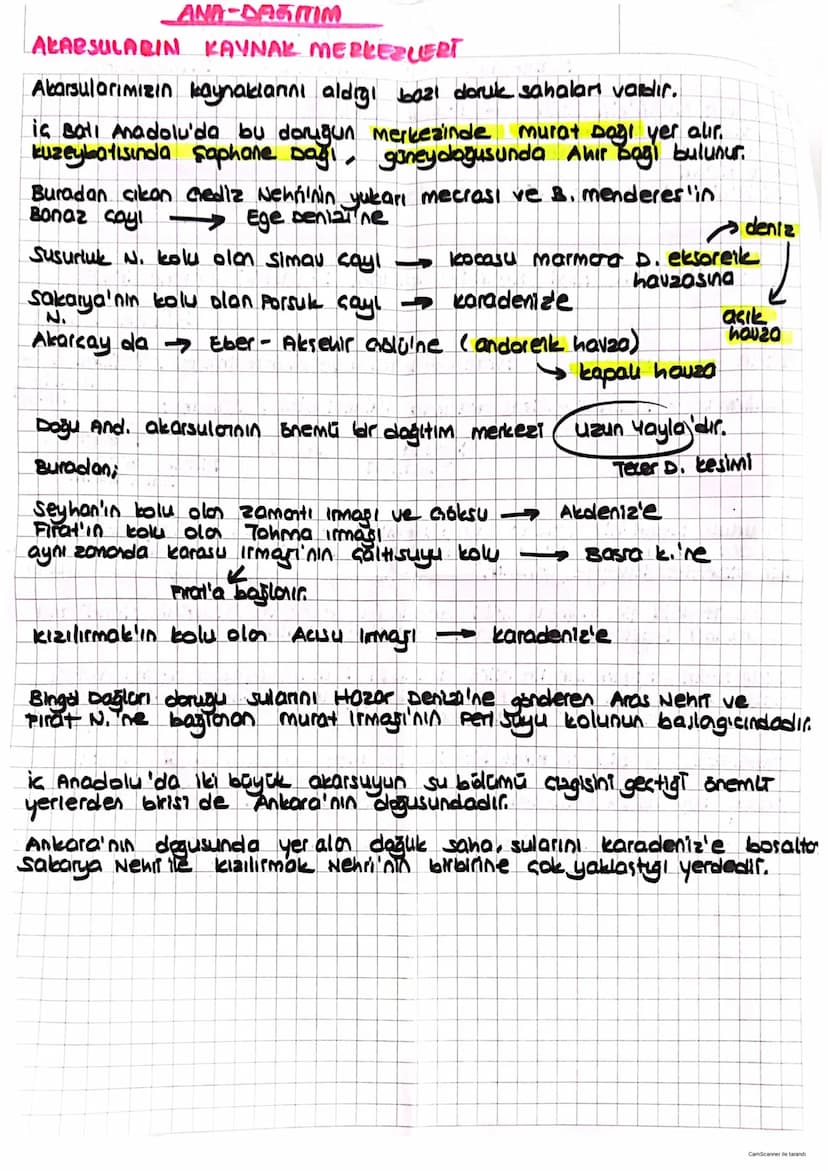 ANA-DAĞITIM
AKARSULARIN KAYNAK MERKEZLERİ
Akarsularımızın kaynaklarını aldığı bazı doruk sahaları vardır.
İç Batı Anadolu'da bu doruğun merkezinde murat Dağı yer alır.
kuzeybatısında Şaphane Dağı, güneydoğusunda Ahır Dağı bulunur.
Buradan çıkan Gediz Nehri'nin yukarı mecrası ve B. menderes'in
Banaz çayı → Ege Denizi'ne
→ deniz
Susurluk N. kolu olan Simav çayı → Kocasu marmara D. eksoreik
havzasına
Sakarya'nın kolu olan Porsuk çayı → karadeniz'e
N.
açık
havza
Akarçay da → Eber-Akşehir Gölü'ne (andoreik havza)
→ kapalı havza
Doğu And. akarsularının önemli bir dağıtım merkezi Uzun Yayla'dır.
Buradan;
Tecer D. kesimi
Seyhan'ın kolu olan Zamantı ırmağı ve Göksu → Akdeniz'e
Fırat'ın kolu olan Tohma ırmağı
aynı zamanda karasu ırmağı'nın çaltısuyu kolu → Basra k.'ne
Fırat'a bağlanır.
Kızılırmak'ın kolu olan Acısu Irmağı → karadeniz'e
Bingöl Dağları doruğu sularını Hazar Denizi'ne gönderen Aras Nehri ve
Fırat N.'ne bağlanan murat ırmağı'nın Peri Suyu kolunun başlagıcındadır.
iç Anadolu'da iki büyük akarsuyun su bölümü çizgisini geçtiği önemli
yerlerden birisi de Ankara'nın doğusundadır.
Ankara'nın doğusunda yer alan dağlık saha, sularını karadeniz'e boşalta
Sakarya Nehri ile kızılırmak Nehri'nin birbirine çok yaklaştığı yerdedir.
CamScanner ile tarandı